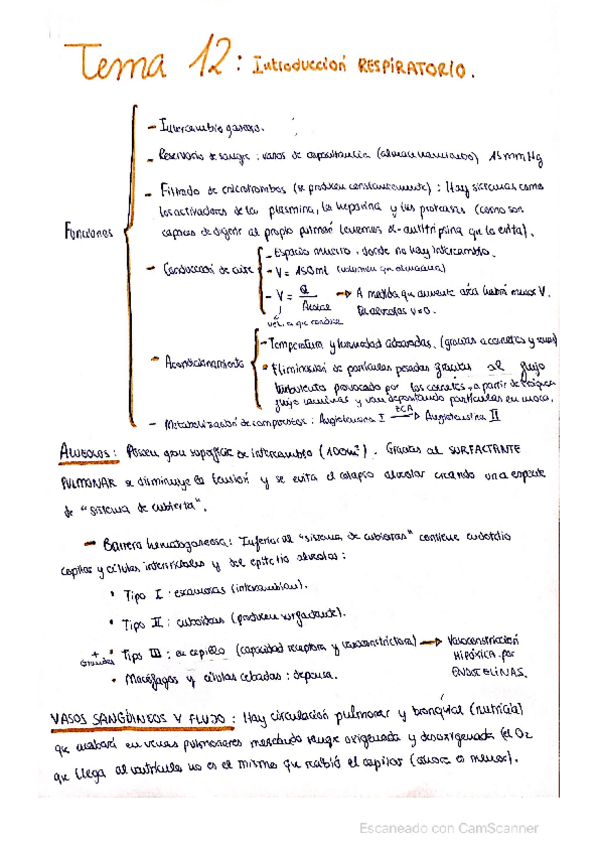 Tema 12: Introducción RESPIRATORIO.
- Intercambio gaseoso.
- Reservorio de sangre: vasos de capacitancia (almacenamiento) 15 mmHg
- Filtrado de microtrombos (se producen constantemente): Hay sistemas como
los activadores de la plasmina, la heparina y las proteasas (como son
capaces de digerir al propio pulmón tenemos α-antitripsina que la evita).
Funciones
- Conducción de aire
- Espacio muerto, donde no hay intercambio.
- V = 150ml (volumen que almacena)
- V = Q / Área → A medida que aumente área habrá menor V.
En alveolos v=0.
vel. a que conduce
- Acondicionamiento
- Temperatura y humedad adecuadas. (gracias a cornetes y
• Eliminación de partículas pesadas gracias al flujo
turbulento provocado por los cornetes, a partir de
flujo laminar y van depositando partículas en moco.
- Metabolización de compuestos: Angiotensina I ECA → Angiotensina II
ALVEOLOS: Poseen gran superficie de intercambio (100m²). Gracias al SURFACTANTE
PULMONAR se disminuye la tensión y se evita el colapso alveolar creando una especie
de "sistema de cubierta".
- Barrera hematogaseosa: Inferior al "sistema de cubiertas" contiene endotelio
capilar y células intersticiales y del epitelio alveolar:
• Tipo I: escamosas (intercambian).
• Tipo II: cuboideas (producen surfactante).
+ grandes
• Tipo III: en cepillo (capacidad receptora y vasoconstrictora) → Vasoconstricción
HIPÓXICA por
ENDOTELINAS.
• Macrófagos y células cebadas: defensa.
VASOS SANGÜINEOS Y FLUJO: Hay circulación pulmonar y bronquial (nutricia)
que acabará en venas pulmonares mezclando sangre oxigenada y desoxigenada (el O2
que llega al ventrículo no es el mismo que recibió el capilar (ahora es menor).
Escaneado con CamScanner